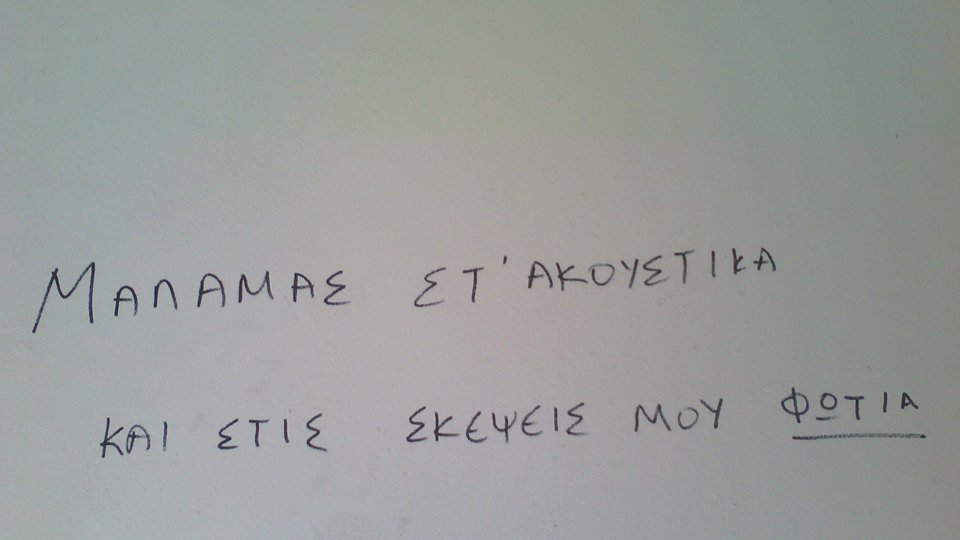 ΜΑΛΑΜΑΣ ΣΤ'ΑΚΟΥΣΤΙΚΑ
ΚΑΙ ΣΤΙΣ ΣΚΕΨΕΙΣ ΜΟΥ ΦΩΤΙΑ